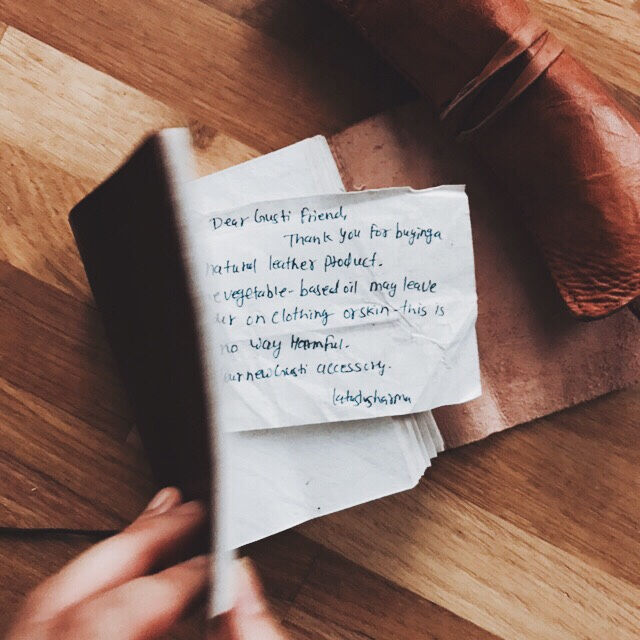 Dear Gusti friend,
Thank you for buying a
natural leather product.
vegetable-based oil may leave
on clothing or skin this is
no way Harmful.
new Gusti accessory.